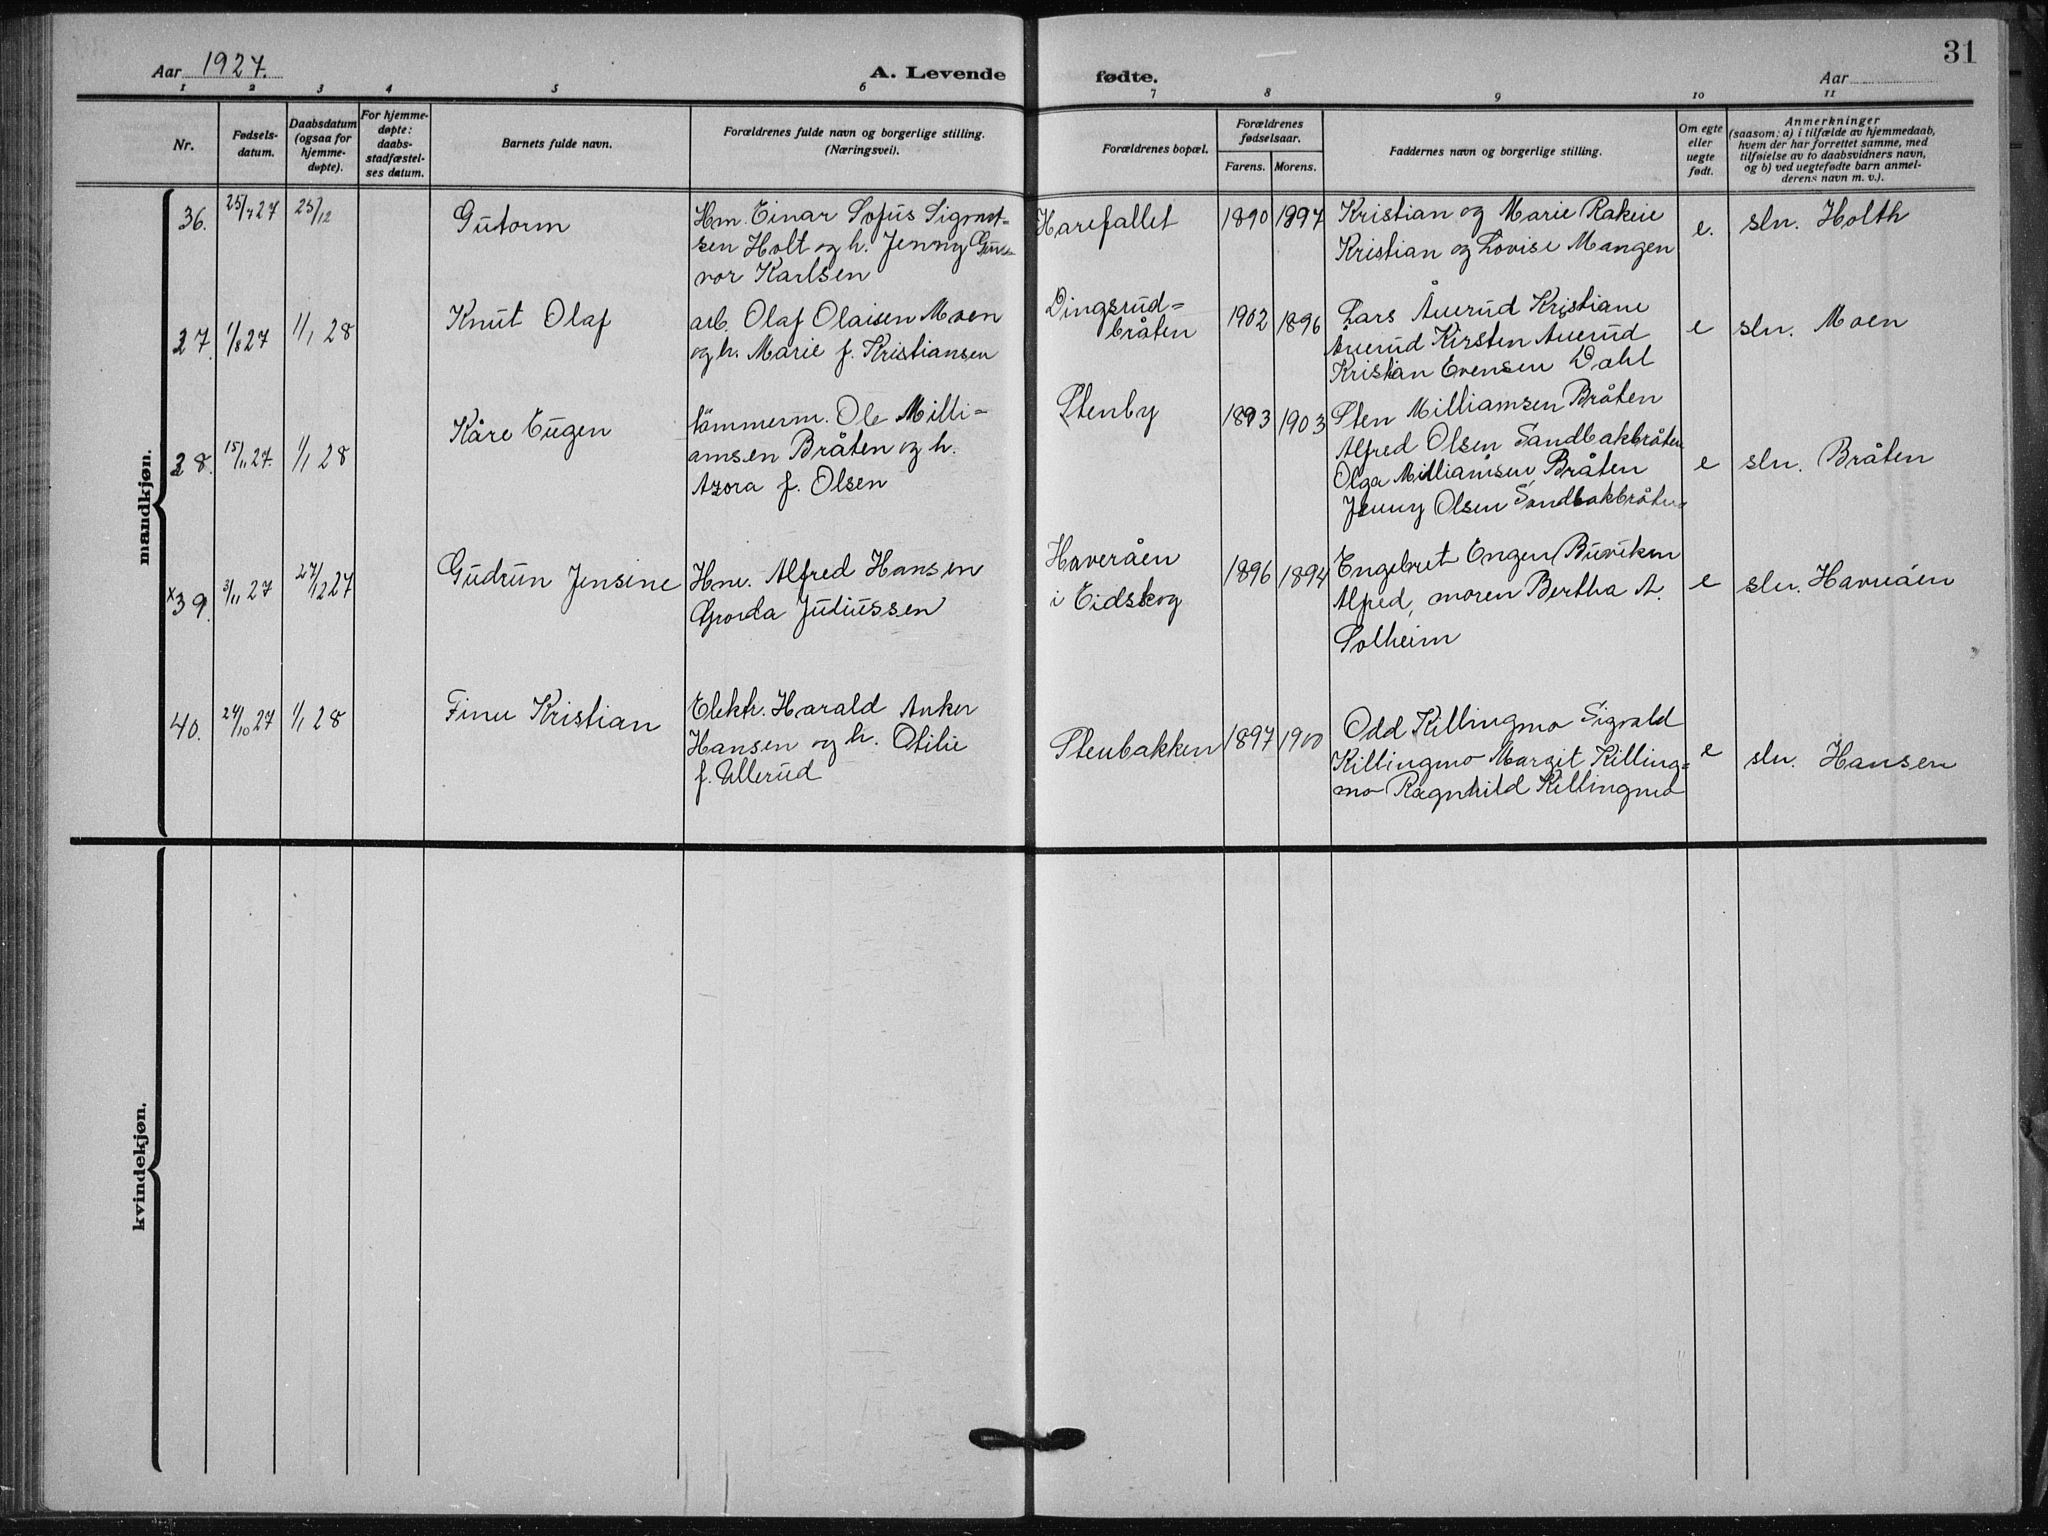 Aar 1927.
A. Levende
fødte.
Aar
31
1 2 3 4 5 6 7 8 9 10 11
Nr.
Fødsels-
datum.
Daabsdatum
(ogsaa for
hjemme-
døpte).
For hjemme-
døpte:
daabs-
stadfæstel-
ses datum.
Barnets fulde navn.
Forældrenes fulde navn og borgerlige stilling.
(Næringsvei).
Forældrenes bopæl.
Forældrenes
fødselsaar.
Farens. Morens.
Faddernes navn og borgerlige stilling.
Om egte
eller
uegte
født.
Anmerkninger
(saasom: a) i tilfælde av hjemmedaab,
hvem der har forrettet samme, med
tilføielse av to daabsvidners navn,
og b) ved uegtefødte barn anmel-
derens navn m. v.).
mandkjøn.
36. 25/7 27 25/12
Gutorm
Hm. Einar Sofus Sigmst-
sen Holt og h. Jenny Gun-
vor Karlsen
Harefallet
1890 1897
Kristian og Marie Rakeie
Kristian og Lovise Mangen
e. sln. Holth
37. 1/8 27 1/1 28
Knut Olaf
arb. Olaf Olaisen Moen
og h. Marie f. Kristiansen
Dingsrud=
bråten
1902 1896
Lars Åuerud Kristiane
Åuerud Kirsten Auerud
Kristian Evensen Dahl
e sln. Moen
38. 15/11 27. 1/1 28
Kåre Eugen
tömmerm. Ole Milli=
amsen Bråten og h.
Azora f. Olsen
Stenby
1893 1903
Sten Milliamsen Bråten
Alfred Olsen Sandbakbråten
Olga Milliamsen Bråten
Jenny Olsen Sandbakbråten
e sln. Bråten
x39. 3/11 27 27/12 27
Gudrun Jensine
Hne. Alfred Hansen
Gorda Juliussen
Haveråen
i Eidskog
1896 1894
Engebret Engen, Buviken
Alfred, moren Bertha A.
Solheim
e sln. Haveråen
40. 24/10 27 1/1 28
Finn Kristian
Elektr. Harald Anker
Hansen og h. Otilie
f. Ullerud
Stenbakken
1897 1900
Odd Killingmo Sigvald
Killingmo Margit Killing=
mo Ragnhild Killingmo
e sln. Hansen
kvindekjøn.